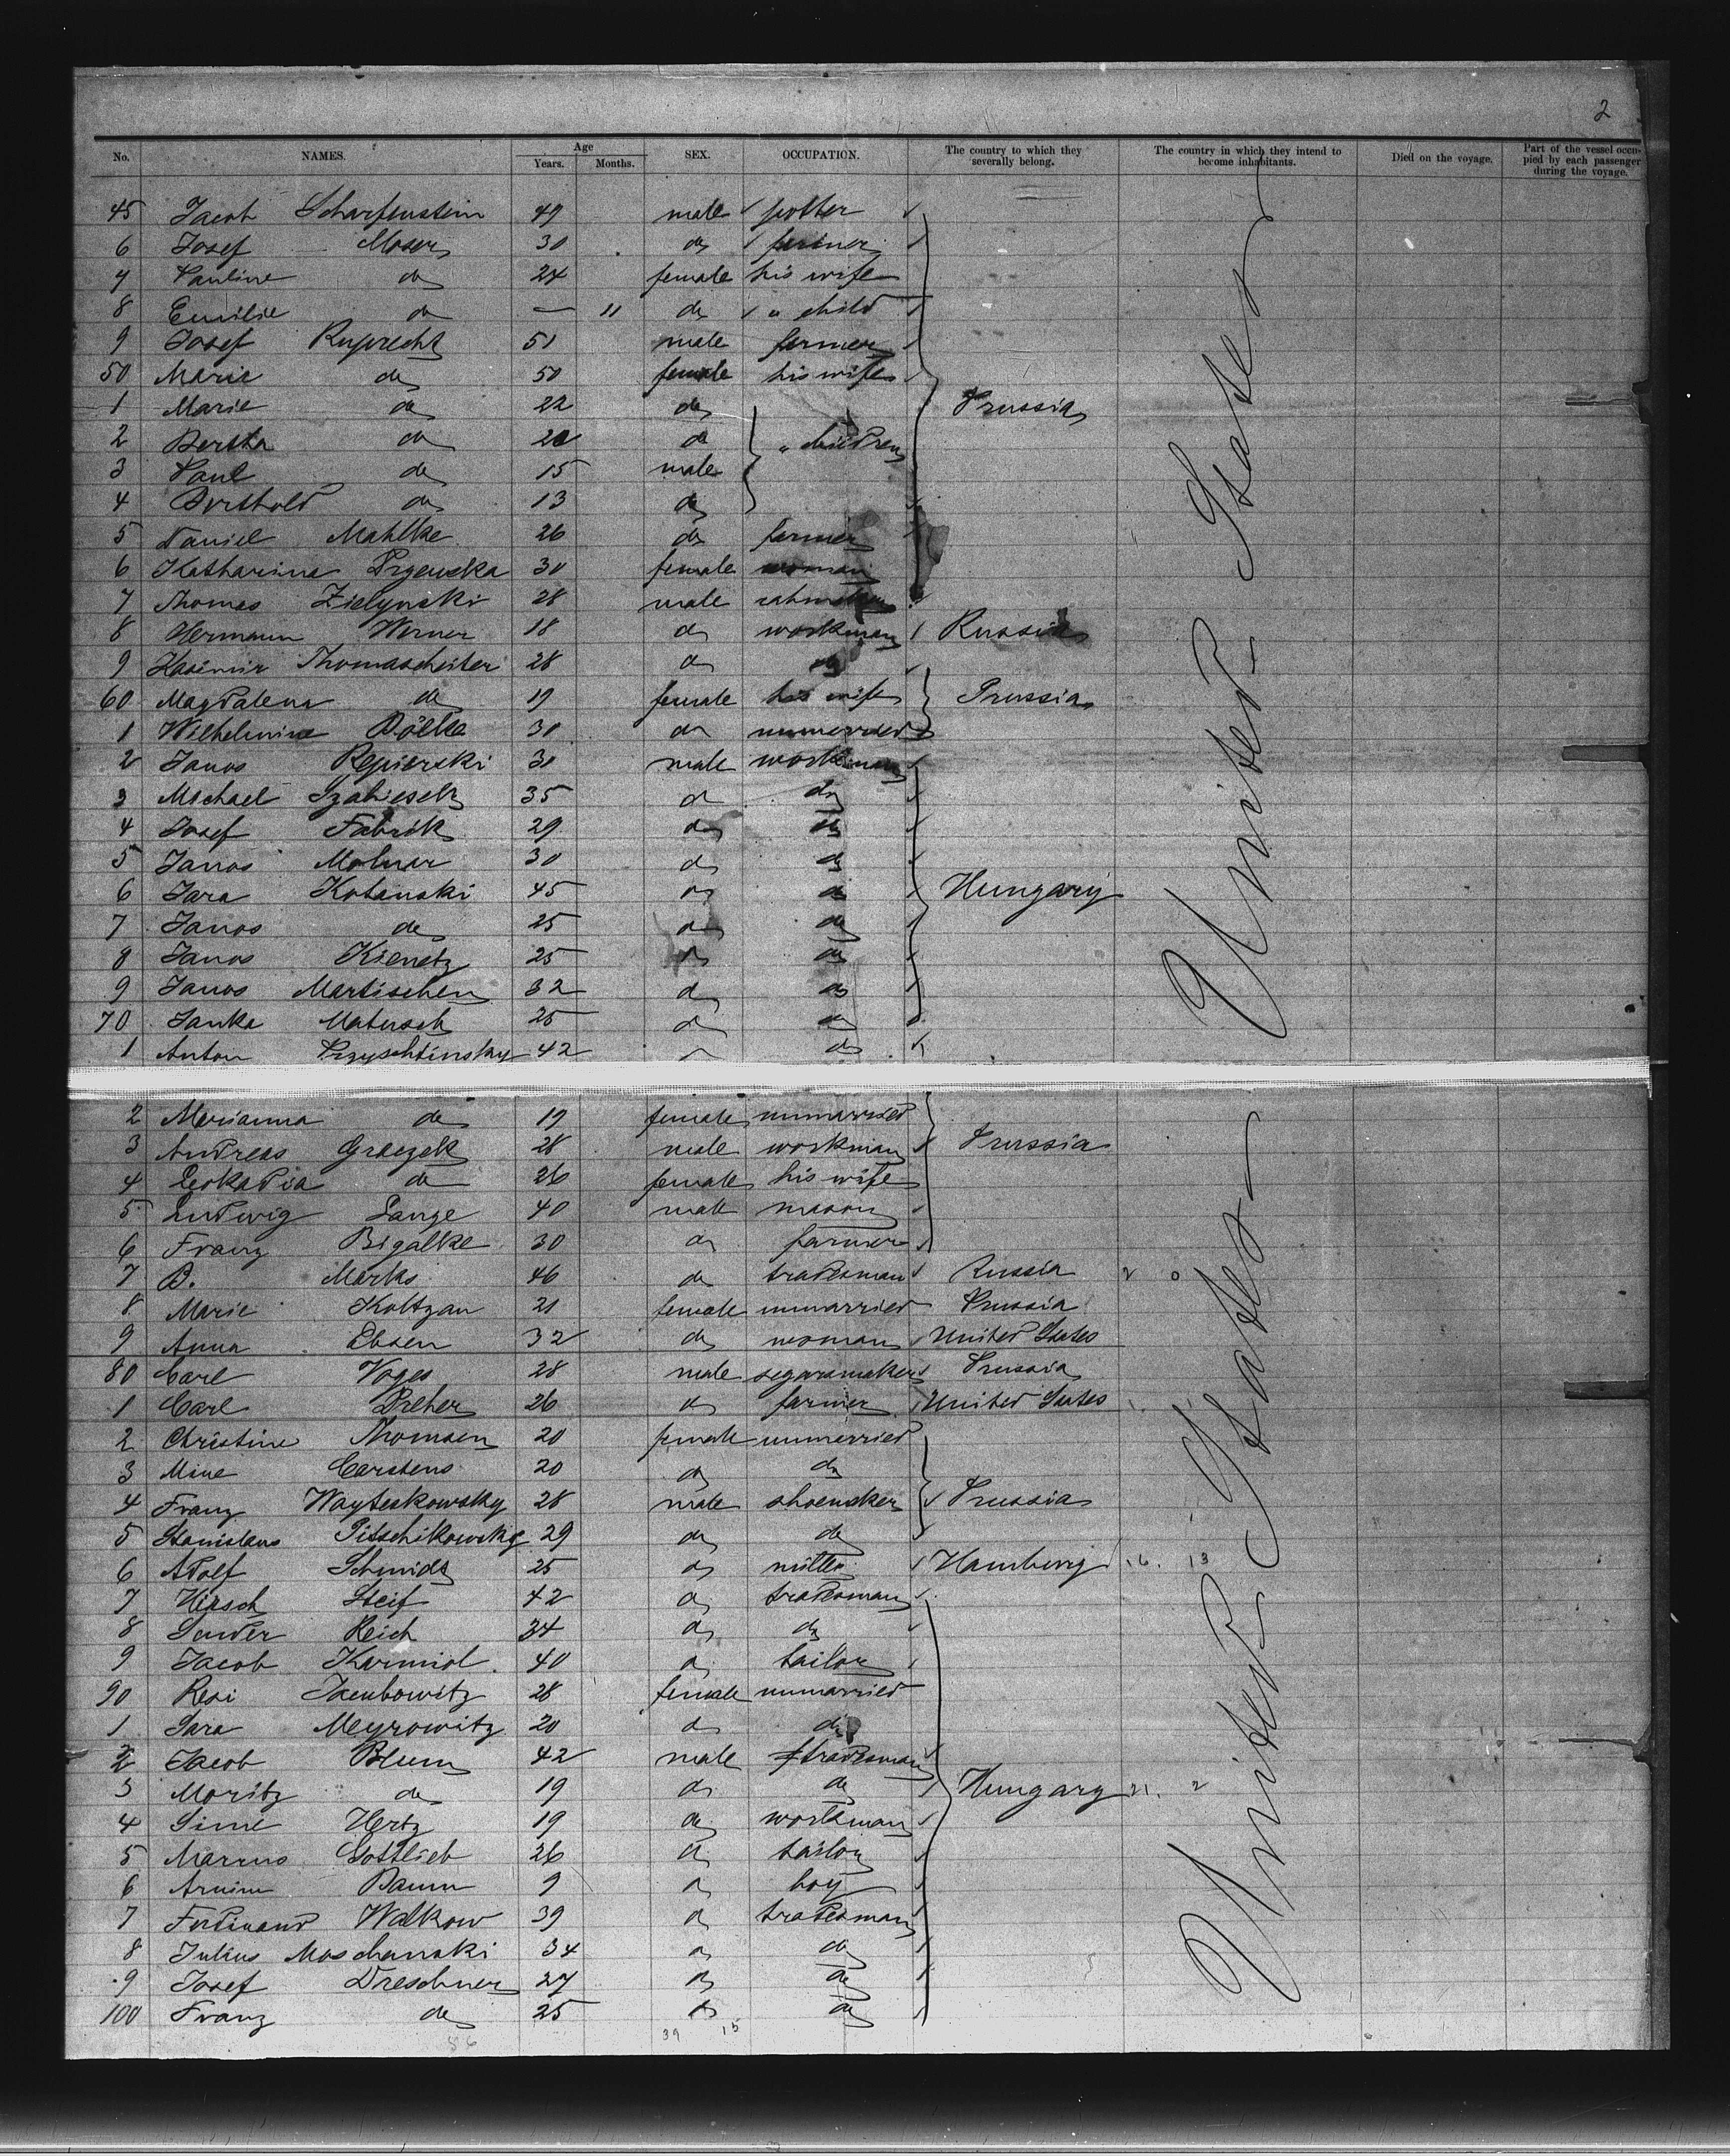 2
No. NAMES. Age Years. Months. SEX. OCCUPATION. The country to which they severally belong. The country in which they intend to become inhabitants. Died on the voyage. Part of the vessel occupied by each passenger during the voyage.
45 Jacob Scharfenstein 49 male potter
6 Josef Moser 30 do farmer
7 Pauline do 24 female his wife
8 Emilie do — 11 do " child
9 Josef Ruprecht 51 male farmer
50 Marie do 50 female his wife
1 Marie do 22 do Prussia
2 Bertha do do " children
3 Paul do 15 male
4 Berthold do 13 do
5 Daniel Mahlke 26 do farmer
6 Katharina 30 female woman
7 Thomas Zielynski 28 male
8 Hermann Werner 18 do workman Russia
9 Kasimir Thomascheiter 28 do do
60 Magdalena do 19 female his wife Prussia
1 Wilhelmine Bölke 30 do unmarried
2 Janos Repierski 30 male workman
3 Michael 35 do do
4 Josef Fabrik 29 do do
5 Janos Molnar 30 do do
6 Jara Kotanski 45 do do Hungary
7 Janos do 25 do do
8 Janos Kienetz 25 do do
9 Janos Martischen 32 do do
70 Janka Matusch 25 do do
1 Anton Przyschtinsky 42 do do
United States
2 Marianna do 19 female unmarried
3 Andreas Graezek 28 male workman Prussia
4 Leokadia do 26 female his wife
5 Ludwig Lange 40 male mason
6 Franz Bigalke 30 do farmer
7 B. Marks 46 do tradesman Russia 2 0
8 Marie Koltzan 21 female unmarried Prussia
9 Anna Ebsen 32 do woman United States
80 Carl Voges 28 male segarsmaker Prussia
1 Carl Dreher 26 do farmer United States
2 Christine Thomsen 20 female unmarried
3 Mine Carstens 20 do do
4 Franz Wayteskowsky 28 male shoemaker Prussia
5 Stanislaus Pitschikowsky 29 do do
6 Adolf Schmidt 25 do miller Hamburg 16. 13
7 Hirsch Steif 42 do tradesman
8 Sander Reich 34 do do
9 Jacob Karmiol 40 do tailor
90 Resi Jacubowitz 28 female unmarried
1 Sara Meyrowitz 20 do do
2 Jacob Blum 42 male tradesman
3 Moritz do 19 do do Hungary 21. 2
4 Sime Hertz 19 do workman
5 Marcus Gottlieb 26 do tailor
6 Armin Baum 9 do boy
7 Ferdinand Walkow 39 do tradesman
8 Julius Moschanski 34 do do
9 Josef Dreschner 27 do do
100 Franz do 25 do do
United States
56 39 15